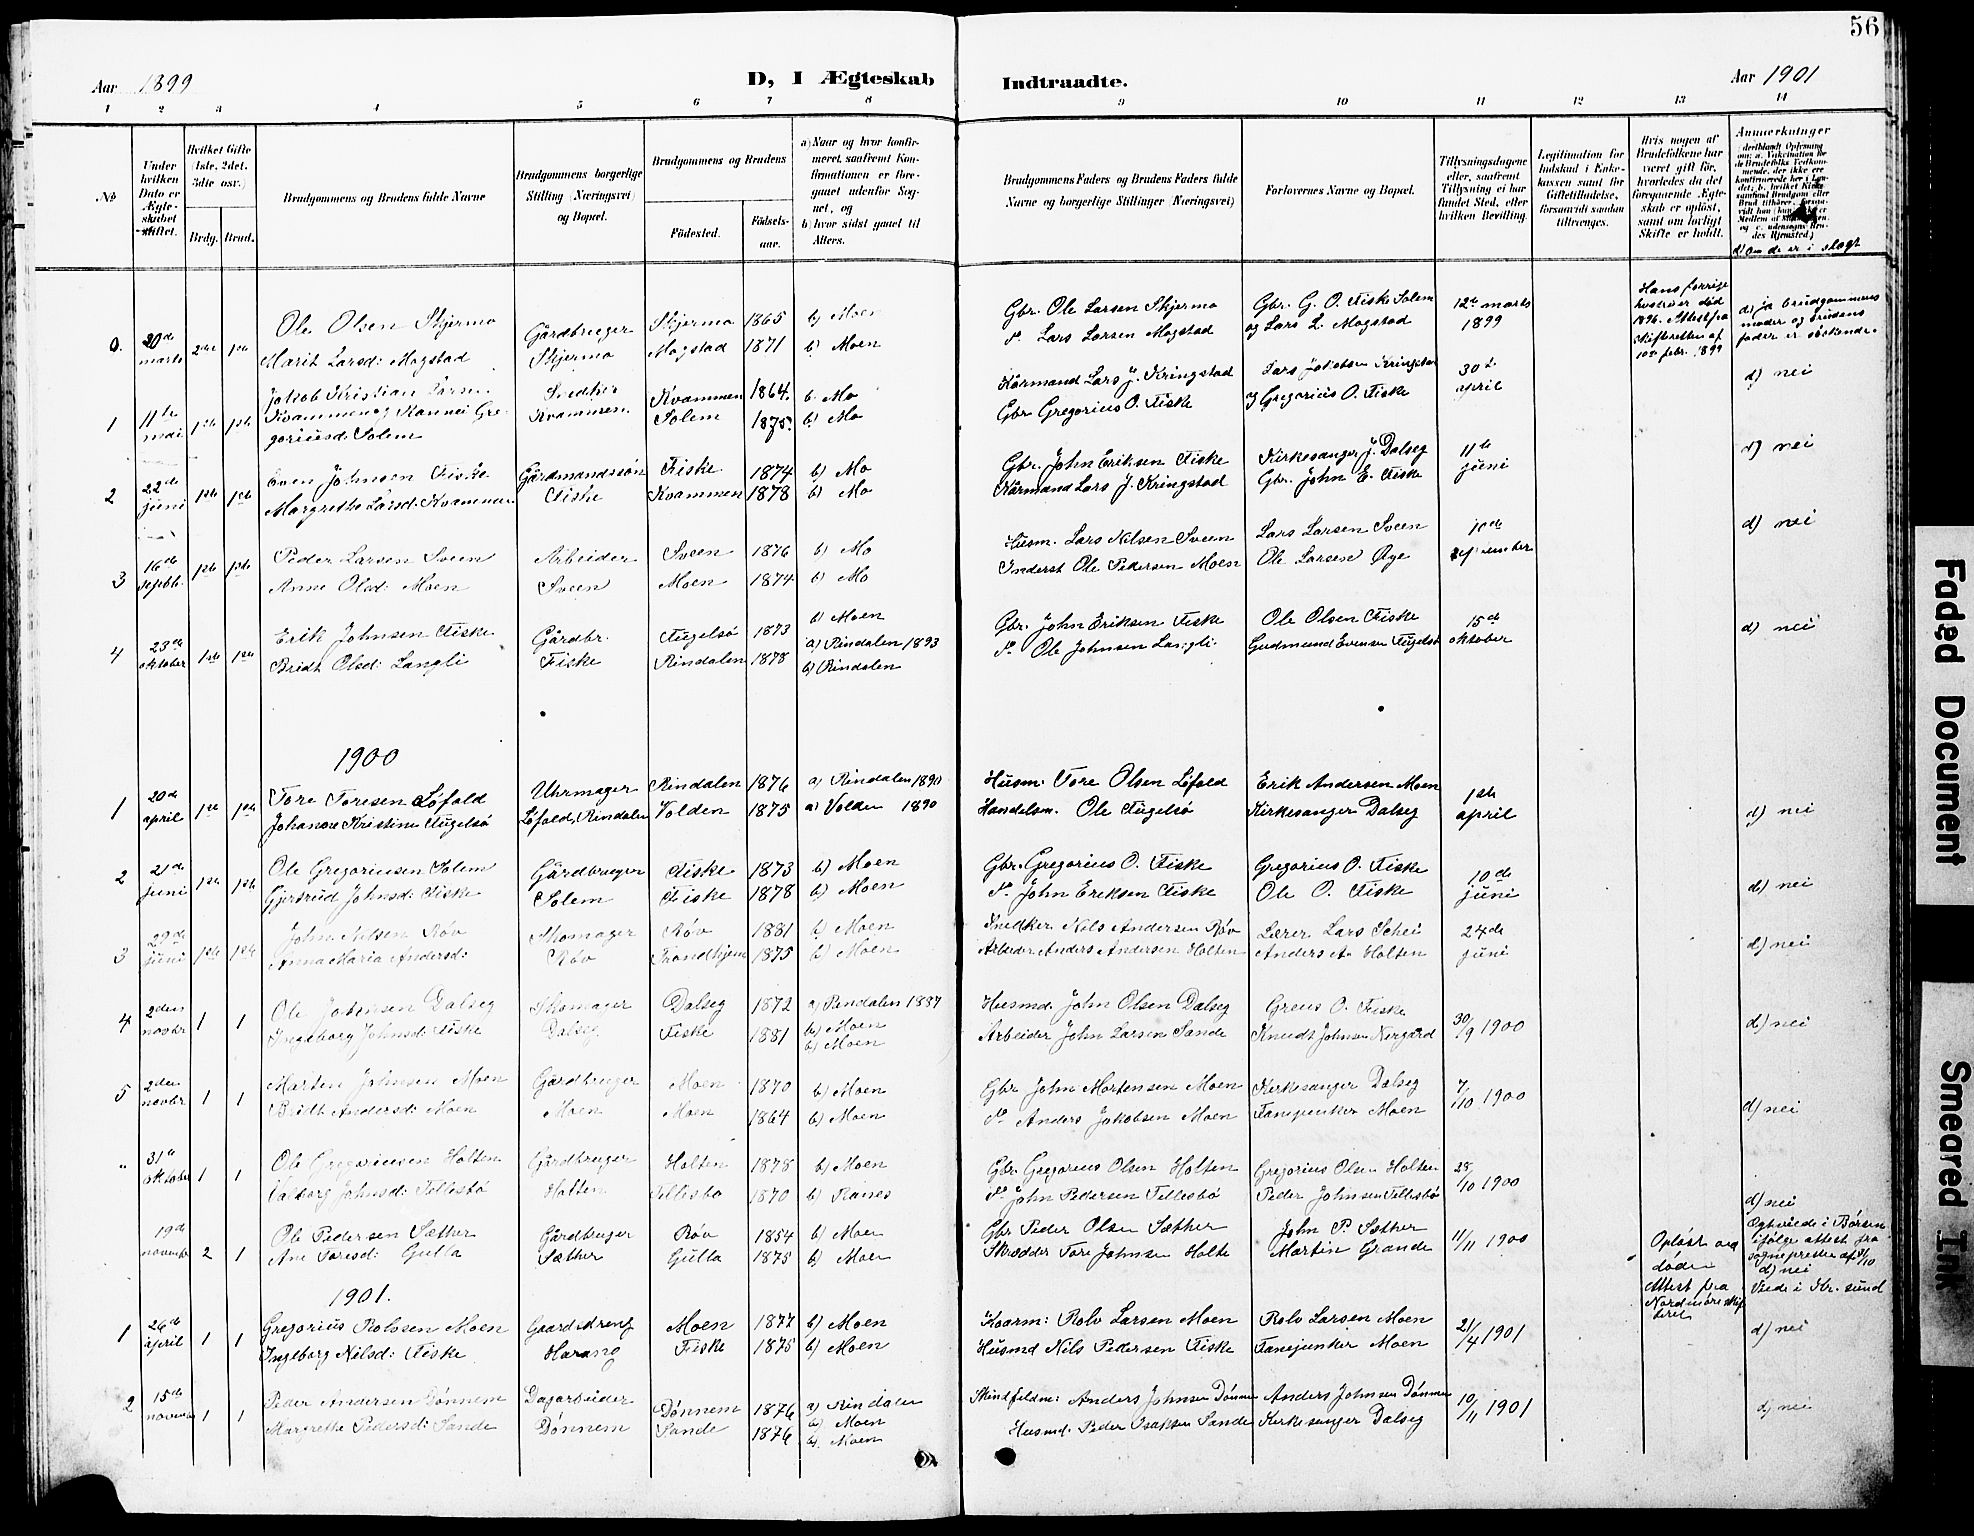 56
Aar 1899 D, I Ægteskab Indtraadte. Aar 1901
1 2 3 4 5 6 7 8 9 10 11 12 13 14
No
Under hvilken Dato er Ægteskabet stiftet.
Hvilket Gifte (1ste, 2det, 3die osv.)
Brdg. Brud.
Brudgommens og Brudens fulde Navne
Brudgommens borgerlige Stilling (Næringsvei) og Bopæl.
Brudgommens og Brudens
Fødested. Fødselsaar.
a) Naar og hvor konfirmeret, saafremt Konfirmationen er foregaaet udenfor Sognet, og
b) hvor sidst gaaet til Alters.
Brudgommens Faders og Brudens Faders fulde Navne og borgerlige Stillinger (Næringsvei)
Forlovernes Navne og Bopæl.
Tillysningsdagene eller, saafremt Tillysning ei har fundet Sted, efter hvilken Bevilling.
Legitimation for Indskud i Enkekassen samt for Giftetilladelse, forsaavidt saadan tiltrænges.
Hvis nogen af Brudefolkene har været gift før, hvorledes da det foregaaende Ægteskab er opløst, samt om lovligt Skifte er holdt.
Anmærkninger
d) om de er i slægt
0. 20de marts 2det 1ste Ole Olsen Skjermo Gårdbruger Skjermo 1865 b) Moen Gbr. Ole Larsen Skjermo Gbr. G. O. Fiske Solem 12te marts 1899
Marit Larsd: Mogstad Skjermo Mogstad 1871 b) Moen Lars Larsen Mogstad og Lars L. Mogstad
Hans forrige hustru er død 1896. Attest fra skifteretten af 10de febr. 1899
d) ja brudgommens moder og brudens fader er søskende.
1 11te mai 1ste 1ste Jakob Kristian Larsen Kvammen og Kannei Gregoriusd: Solem Snedker Kvammen Kvammen 1864. b. Mo Kårmand Lars J. Kringstad Lars Jakobsen Kringstad 30te april d) nei
Solem 1875. b) Mo Gbr Gregorius O. Fiske og Gregorius O. Fiske
2 22de juni 1ste 1ste Even Johnsen Fiske Gårdmandssøn Fiske 1874 b) Mo Gbr. John Eriksen Fiske Kirkesanger J. Dalseg 11te juni d) nei
Margrethe Larsd: Kvammen Fiske Kvammen 1878 b) Mo Kårmand Lars J. Kringstad Gbr. John E. Fiske
3 16de septbr. 1ste 1ste Peder Larsen Sveen Arbeider Sveen 1876 b) Mo Husm. Lars Nilsen Sveen Lars Larsen Sveen 10de september d) nei
Anne Olsd: Moen Sveen Moen 1874 b) Mo Inderst Ole Pedersen Moen Ole Larsen Øye
4 23de oktober 1ste 1ste Erik Johnsen Fiske Gårdbr. Fugelsø 1873 b) Moen Gbr. John Eriksen Fiske Ole Olsen Fiske 15de oktober d) nei
Bridt Olsd: Langli Fiske Rindalen 1878 a) Rindalen 1893 b) Rindalen Ole Johnsen Langli. Gudmund Evensen Fugelsø
1900
1 20de april 1ste 1ste Tore Toresen Løfald Uhrmager Rindalen 1876 a) Rindalen Husm. Tore Olsen Løfald Erik Andersen Moen 1ste april d) nei
Johanne Kristine Fugelsø Løfald, Rindalen Volden 1875 a) Volden 1890 Handelsm. Ole Fugelsø Kirkesanger Dalseg
2 21de juni 1ste 1ste Ole Gregoriussen Solem Gårdbruger Fiske 1873 b) Moen Gbr. Gregorius O. Fiske Gregorius O. Fiske 10de juni d) nei
Gjertrud Johnsd: Fiske Solem Fiske 1878 b) Moen John Eriksen Fiske Ole O. Fiske
3 29de juni 1ste 1ste John Nilsen Røv Skomager Røv 1881 b) Moen Snedker Nils Andersen Røv Lærer Lars Schei 24de juni d) nei
Anna Maria Andersd: Røv Trondhjem 1875 b) Moen Arbeider Anders Andersen Holten Anders A. Holten
4 2den novbr 1 1 Ole Johnsen Dalseg Skomager Dalseg 1872 a) Rindalen 1887 b) Moen Husmd. John Olsen Dalseg Greus O. Fiske 30/9 1900 d) nei
Ingeborg Johnsd: Fiske Dalseg Fiske 1881 b) Moen Arbeider John Larsen Sande Knudt Johnsen Nergård
5 2den novbr 1 1 Marten Johnsen Moen Gårdbruger Moen 1870 b) Moen Gbr. John Mortensen Moen Kirkesanger Dalseg 7/10 1900 d) nei
Bridt Andersd: Moen Moen Moen 1864 b) Moen Anders Jakobsen Moen Fanejunker Moen
" 31te oktober 1 1 Ole Gregoriussen Holten Gårdbruger Holten 1878 b) Moen Gbr. Gregorius Olsen Holten Gregorius Olsen Holten 28/10 1900 d) nei
Valborg Johnsd: Tellesbø Holten Tellesbø 1870 b) Ranes John Pedersen Tellesbø Peder Johnsen Tellesbø
19de november 2 1 Ole Pedersen Sæther Gårdbruger Røv 1854 b) Moen Gbr Peder Olsen Sæther John P. Sæther 11/11 1900
Ane Toresd: Gulla Sæther Gulla 1875 b) Moen Skrædder Tore Johnsen Holte Martin Grande
Opløst ved døden Attest fra Nordmøre
Ægteviede i Børsen ifølge attest fra sognepresten af d) nei
1901.
1 26de april 1 1 Gregorius Rolvsen Moen Gaard Moen 1877 b) Moen Kaarm: Rolv Larsen Moen Rolv Larsen Moen 21/4 1901 Viede i Kr. sund d) nei
Ingeborg Nilsd: Fiske Harang Fiske 1875 b) Moen Husmd Nils Pedersen Fiske Fanejunker Moen
2 15de november 1 1 Peder Andersen Dønnem Dagarbeider Dønnem 1876 a) Rindalen b) Moen Skindfeldm: Anders Johnsen Dønnem Anders Johnsen Dønnem 10/11 1901 d) nei
Margrethe Pedersd: Sande Dønnem Sande 1876 b) Moen Husmd. Peder Isaksen Sande Kirkesanger Dalseg
Faded Document
Smeared Ink